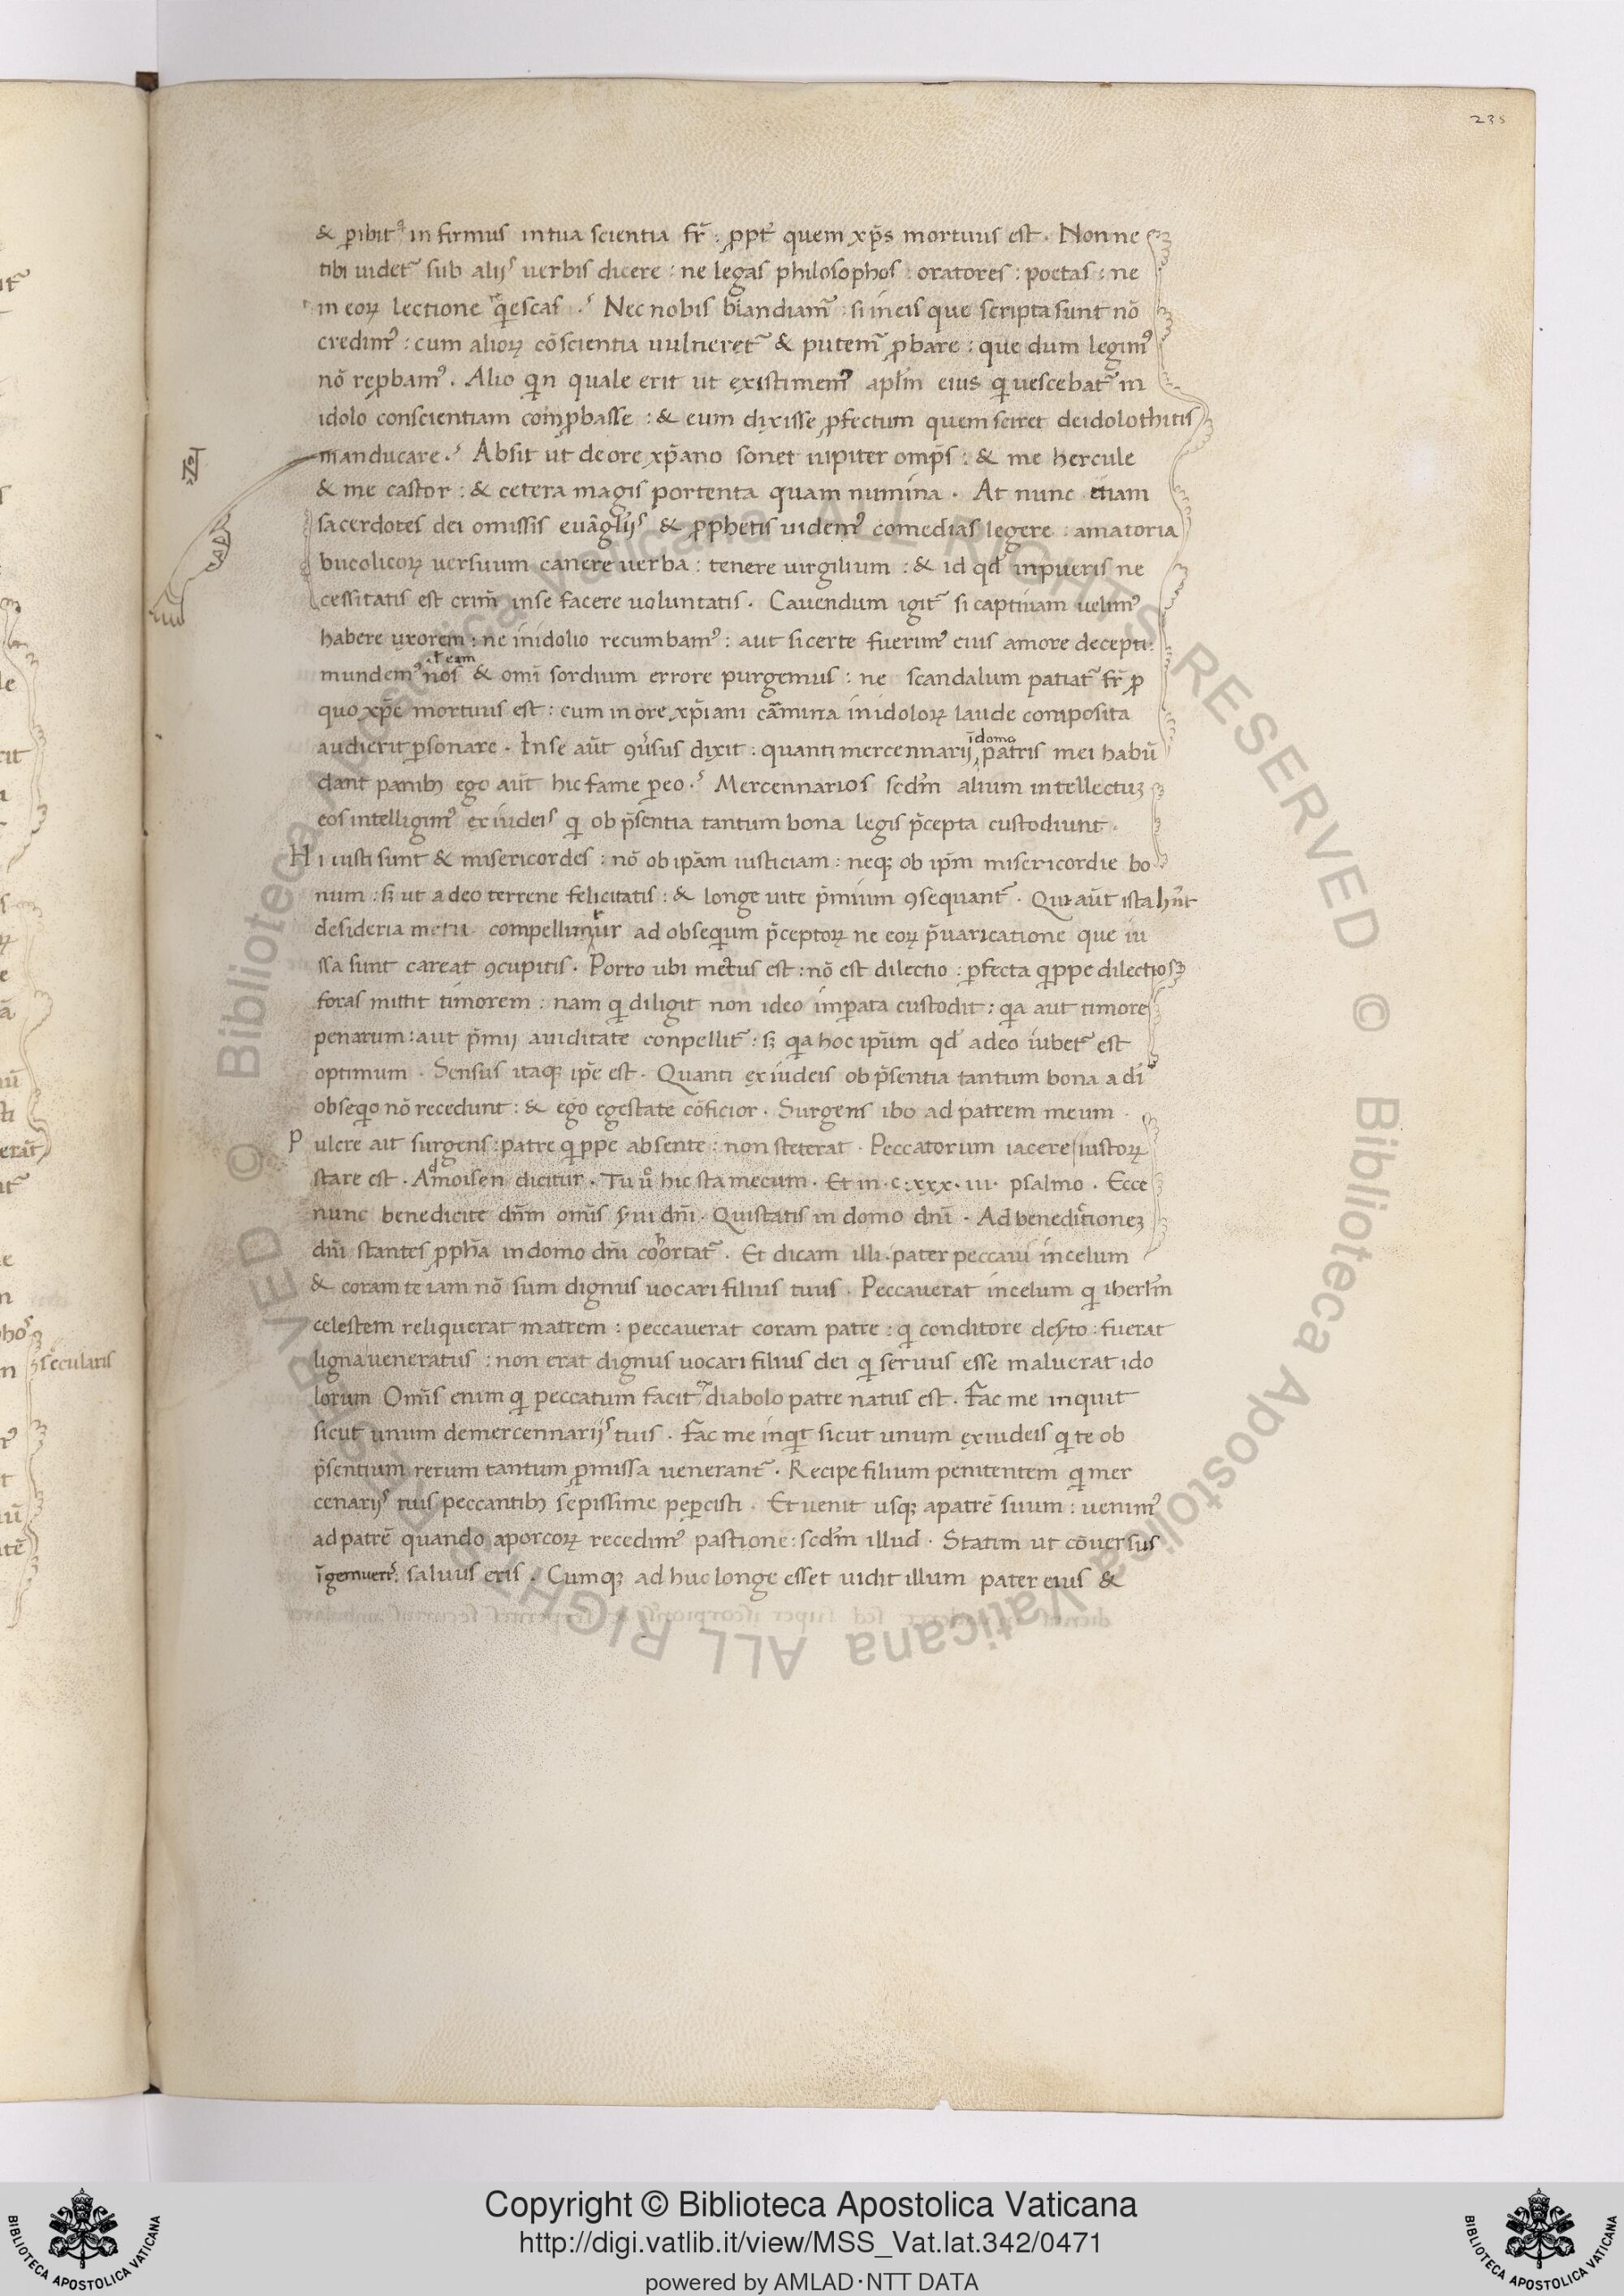 235
& ꝑibit᷑ infirmus in tua scientia fr̄ : ꝓpt̄ quem xp̄s mortuus est . Nonne
tibi uidet᷑ sub alijs uerbis dicere : ne legas philosophos : oratores : poetas : ne
in eoꝝ lectione q̇escas . Nec nobis blandiam᷑ : si in eis que scripta sunt nō
credimꝰ : cum alioꝝ cōscientia uulneret᷑ & putem᷑ ꝓbare : que dum legimꝰ
nō reꝓbamꝰ . Alioqin quale erit ut existimemꝰ apl̄m eius qi uescebat᷑ in
idolo conscientiam comꝓbasse : & eum dixisse ꝑfectum quem sciret de idolothitis
manducare . Absit ut de ore xp̄ano sonet iupiter omp̄s : & me hercule
& me castor : & cetera magis portenta quam numina . At nunc etiam
sacerdotes dei omissis euāgl̄ijs & ꝓphetis uidemꝰ comedias legere : amatoria
bucolicoꝝ uersuum canere uerba : tenere uirgilium : & id qd̄ in pueris ne
cessitatis est crim̄ in se facere uoluntatis . Cauendum igit᷑ si captiuam uelimꝰ
habere uxorem : ne in idolio recumbamꝰ : aut si certe fuerimꝰ eius amore decepti .
al̄ eam
mundemꝰ nos & omī sordium errore purgemus : ne scandalum patiat᷑ fr̄ ꝓ
quo xp̄c mortuus est : cum in ore xp̄iani carmina in idoloꝝ laude composita
audierit ꝑsonare . In se aūt ꝯūsus dixit : quanti mercennarij ī domo patris mei habū
dant panibꝫ ego aūt hic fame ꝑeo . Mercennarios scd̄m alium intellectuꝫ
eos intelligimꝰ ex iudeis qi ob p̄sentia tantum bona legis p̄cepta custodiunt .
Hi iusti sunt & misericordes : nō ob ip̄am iusticiam : neqꝫ ob ip̄m misericordie bo
num : sꝫ ut a deo terrene felicitatis : & longe uite p̄mium ꝯsequant᷑ . Qui aūt ista hn̄t
desideria metu compellimur ad obseqium p̄ceptoꝝ ne eoꝝ p̄uaricatione que iu
ssa sunt careat ꝯcupitis . Porro ubi metus est : nō est dilectio : ꝑfecta qippe dilectio
foras mittit timorem : nam qi diligit non ideo imꝑata custodit : qia aut timore
penarum : aut p̄mij auiditate conpellit᷑ : sꝫ qia hoc ip̄um qd̄ a deo iubet᷑ est
optimum . Sensus itaqꝫ ip̄e est . Quanti ex iudeis ob p̄sentia tantum bona a dī
obseqio nō recedunt : & ego egestate cōficior . Surgens ibo ad patrem meum .
Pulcre ait surgens : patre qippe absente : non steterat . Peccatorum iacere iustoꝝ
stare est . Ad moisen dicitur . Tu ů hic sta mecum . Et in . c . xxx . iii . psalmo . Ecce
nunc benedicite dn̄m omīs s̄ui dn̄i . Qui statis in domo dn̄i . Ad benedictioneꝫ
dn̄i stantes ꝓph̄a in domo dn̄i cohortat᷑ . Et dicam illi . pater peccaui in celum
& coram te iam nō sum dignus uocari filius tuus . Peccauerat in celum qi iherl̄m
celestem reliquerat matrem : peccauerat coram patre : qi conditore des̄to : fuerat
ligna ueneratus : non erat dignus uocari filius dei qi seruus esse maluerat ido
lorum Omīs enim qi peccatum facit diabolo patre natus est . Fac me inquit
sicut unum de mercennarijs tuis . Fac me inqit sicut unum ex iudeis qi te ob
p̄sentium rerum tantum ꝓmissa uenerant᷑ . Recipe filium penitentem qi mer
cenarijs tuis peccantibꝫ sepissime peꝑcisti . Et uenit usqꝫ a patrē suum : uenimꝰ
ad patrē quando a porcoꝝ recedimꝰ pastione : scd̄m illud . Statim ut cōuersus
īgemueris . saluus eris . Cumqꝫ ad huc longe esset uidit illum pater eius &
sęcularis
Copyright © Biblioteca Apostolica Vaticana
http://digi.vatlib.it/view/MSS_Vat.lat.342/0471
powered by AMLAD·NTT DATA
BIBLIOTECA APOSTOLICA VATICANA
BIBLIOTECA APOSTOLICA VATICANA
© Biblioteca Apostolica Vaticana ALL RIGHTS RESERVED © Biblioteca Apostolica Vaticana ALL RIGHTS RESERVED